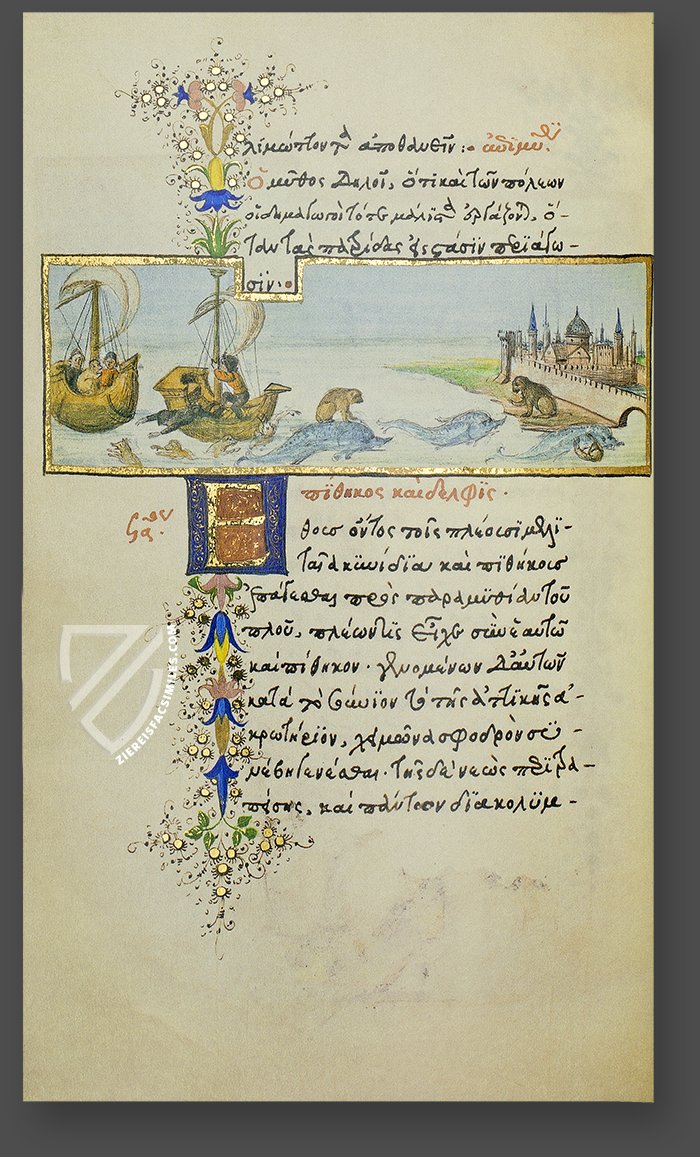 λιμώττοντα ἀποθανεῖν :· ἐπιμύθιον
Ὁ μῦθος δηλοῖ, ὅτι καὶ τῶν πόλεων
οἱ δημαγωγοὶ τότε μάλιστα ἐργάζονται, ὅ-
ταν τὰς πατρίδας εἰς στάσιν περιάγω-
σιν·
πίθηκος καὶ δελφίς·
Ἔθους ὄντος τοῖς πλέουσι μελι-
ταῖα κυνίδια καὶ πιθήκους
ἐπάγεσθαι πρὸς παραμυθίαν τοῦ
πλοῦ, πλέων τις εἶχε σὺν ἑαυτῷ
καὶ πίθηκον· γενομένων δ' αὐτῶν
κατὰ τὸ Σούνιον τὸ τῆς ἀττικῆς ἀ-
κρωτήριον, χειμῶνα σφοδρὸν συ-
νέβη γενέσθαι· τῆς δὲ νεὼς περιτρα-
πείσης, καὶ πάντων διακολυμ-
ZIEREISFACSIMILES.COM